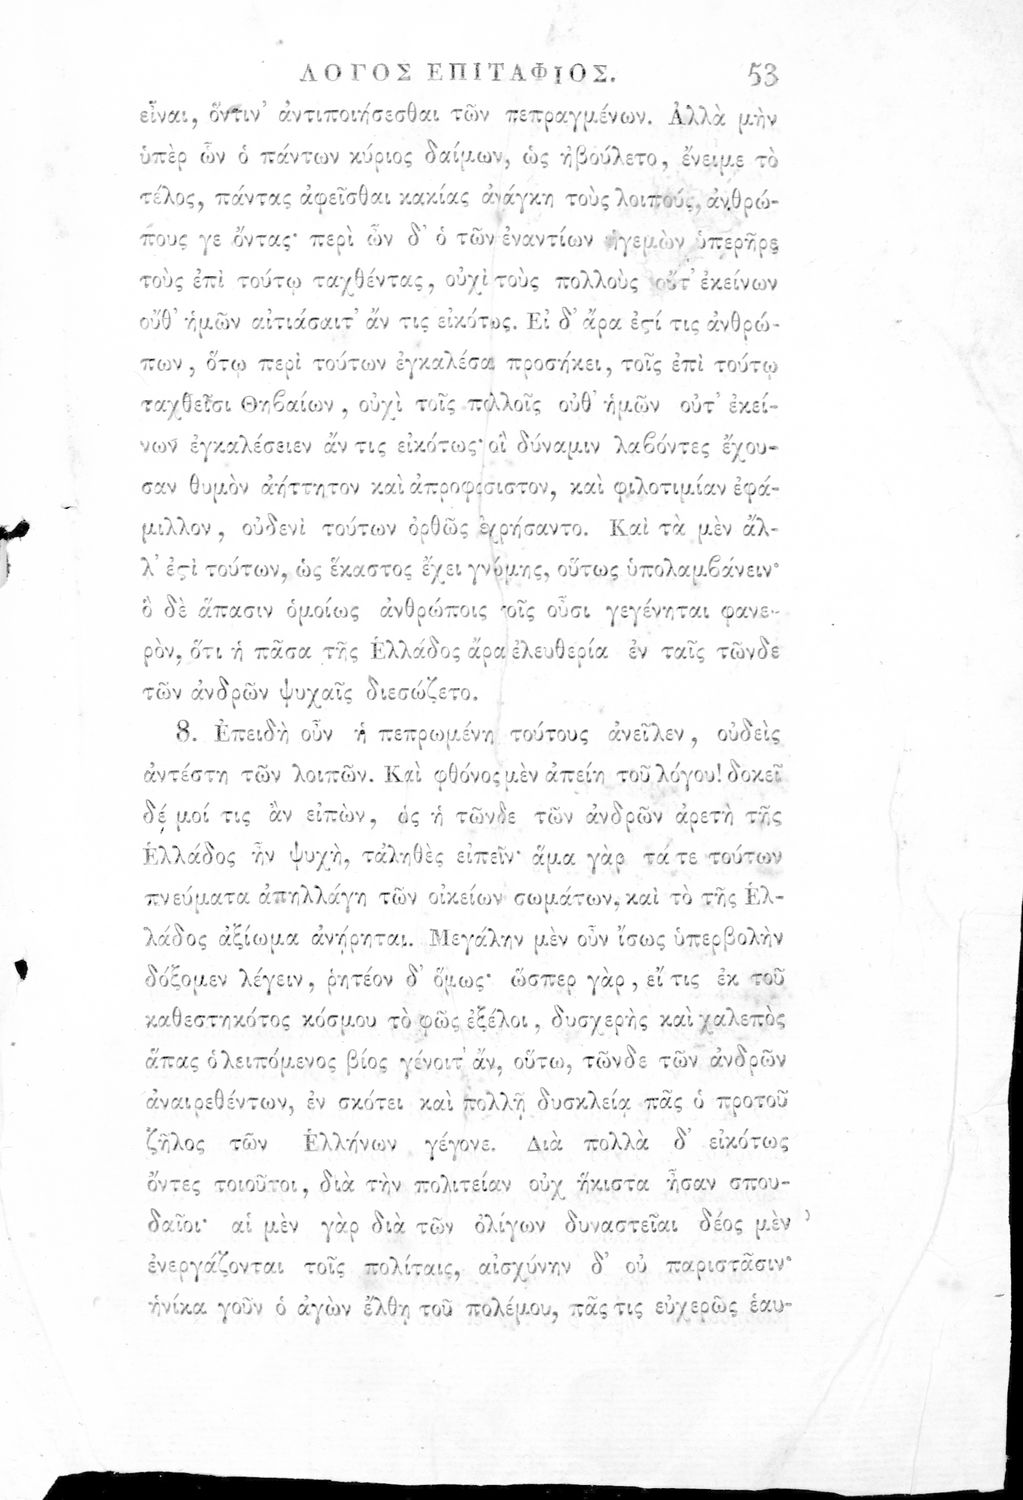 ΛΟΓΟΣ ΕΠΙΤΑΦΙΟΣ. 53
εἶναι, ὅντιν᾽ ἀντιποιήσεσθαι τῶν πεπραγμένων. Ἀλλὰ μὴν
ὑπὲρ ὧν ὁ πάντων κύριος δαίμων, ὡς ἠβούλετο, ἔνειμε τὸ
τέλος, πάντας ἀφεῖσθαι κακίας ἀνάγκη τοὺς λοιποὺς, ἀνθρώ-
πους γε ὄντας· περὶ ὧν δ᾽ ὁ τῶν ἐναντίων ἡγεμὼν ὑπερῆρε
τοὺς ἐπὶ τούτῳ ταχθέντας, οὐχὶ τοὺς πολλοὺς οὔτ᾽ ἐκείνων
οὔθ᾽ ἡμῶν αἰτιάσαιτ᾽ ἄν τις εἰκότως. Εἰ δ᾽ ἄρα ἐϛί τις ἀνθρώ-
πων, ὅτῳ περὶ τούτων ἐγκαλέσαι προσήκει, τοῖς ἐπὶ τούτῳ
ταχθεῖσι Θηβαίων, οὐχὶ τοῖς πολλοῖς οὐθ᾽ ἡμῶν οὐτ᾽ ἐκεί-
νων ἐγκαλέσειεν ἄν τις εἰκότως· οἳ δύναμιν λαβόντες ἔχου-
σαν θυμὸν ἀήττητον καὶ ἀπροφάσιστον, καὶ φιλοτιμίαν ἐφά-
μιλλον, οὐδενὶ τούτων ὀρθῶς ἐχρήσαντο. Καὶ τὰ μὲν ἄλ-
λ᾽ ἐϛὶ τούτων, ὡς ἕκαστος ἔχει γνώμης, οὕτως ὑπολαμβάνειν·
ὃ δὲ ἅπασιν ὁμοίως ἀνθρώποις τοῖς οὖσι γεγένηται φανε-
ρὸν, ὅτι ἡ πᾶσα τῆς Ἑλλάδος ἄρα ἐλευθερία ἐν ταῖς τῶνδε
τῶν ἀνδρῶν ψυχαῖς διεσώζετο.
8. Ἐπειδὴ οὖν ἡ πεπρωμένη τούτους ἀνεῖλεν, οὐδεὶς
ἀντέστη τῶν λοιπῶν. Καὶ φθόνος μὲν ἀπείη τοῦ λόγου! δοκεῖ
δέ μοί τις ἂν εἰπὼν, ὡς ἡ τῶνδε τῶν ἀνδρῶν ἀρετὴ τῆς
Ἑλλάδος ἦν ψυχὴ, τἀληθὲς εἰπεῖν· ἅμα γὰρ τά τε τούτων
πνεύματα ἀπηλλάγη τῶν οἰκείων σωμάτων, καὶ τὸ τῆς Ἑλ-
λάδος ἀξίωμα ἀνῄρηται. Μεγάλην μὲν οὖν ἴσως ὑπερβολὴν
δόξομεν λέγειν, ῥητέον δ᾽ ὅμως· ὥσπερ γὰρ, εἴ τις ἐκ τοῦ
καθεστηκότος κόσμου τὸ φῶς ἐξέλοι, δυσχερὴς καὶ χαλεπὸς
ἅπας ὁ λειπόμενος βίος γένοιτ᾽ ἄν, οὕτω, τῶνδε τῶν ἀνδρῶν
ἀναιρεθέντων, ἐν σκότει καὶ πολλῇ δυσκλείᾳ πᾶς ὁ προτοῦ
ζῆλος τῶν Ἑλλήνων γέγονε. Διὰ πολλὰ δ᾽ εἰκότως
ὄντες τοιοῦτοι, διὰ τὴν πολιτείαν οὐχ ἥκιστα ἦσαν σπου-
δαῖοι· αἱ μὲν γὰρ διὰ τῶν ὀλίγων δυναστεῖαι δέος μὲν
ἐνεργάζονται τοῖς πολίταις, αἰσχύνην δ᾽ οὐ παριστᾶσιν·
ἡνίκα γοῦν ὁ ἀγὼν ἔλθῃ τοῦ πολέμου, πᾶς τις εὐχερῶς ἑαυ-